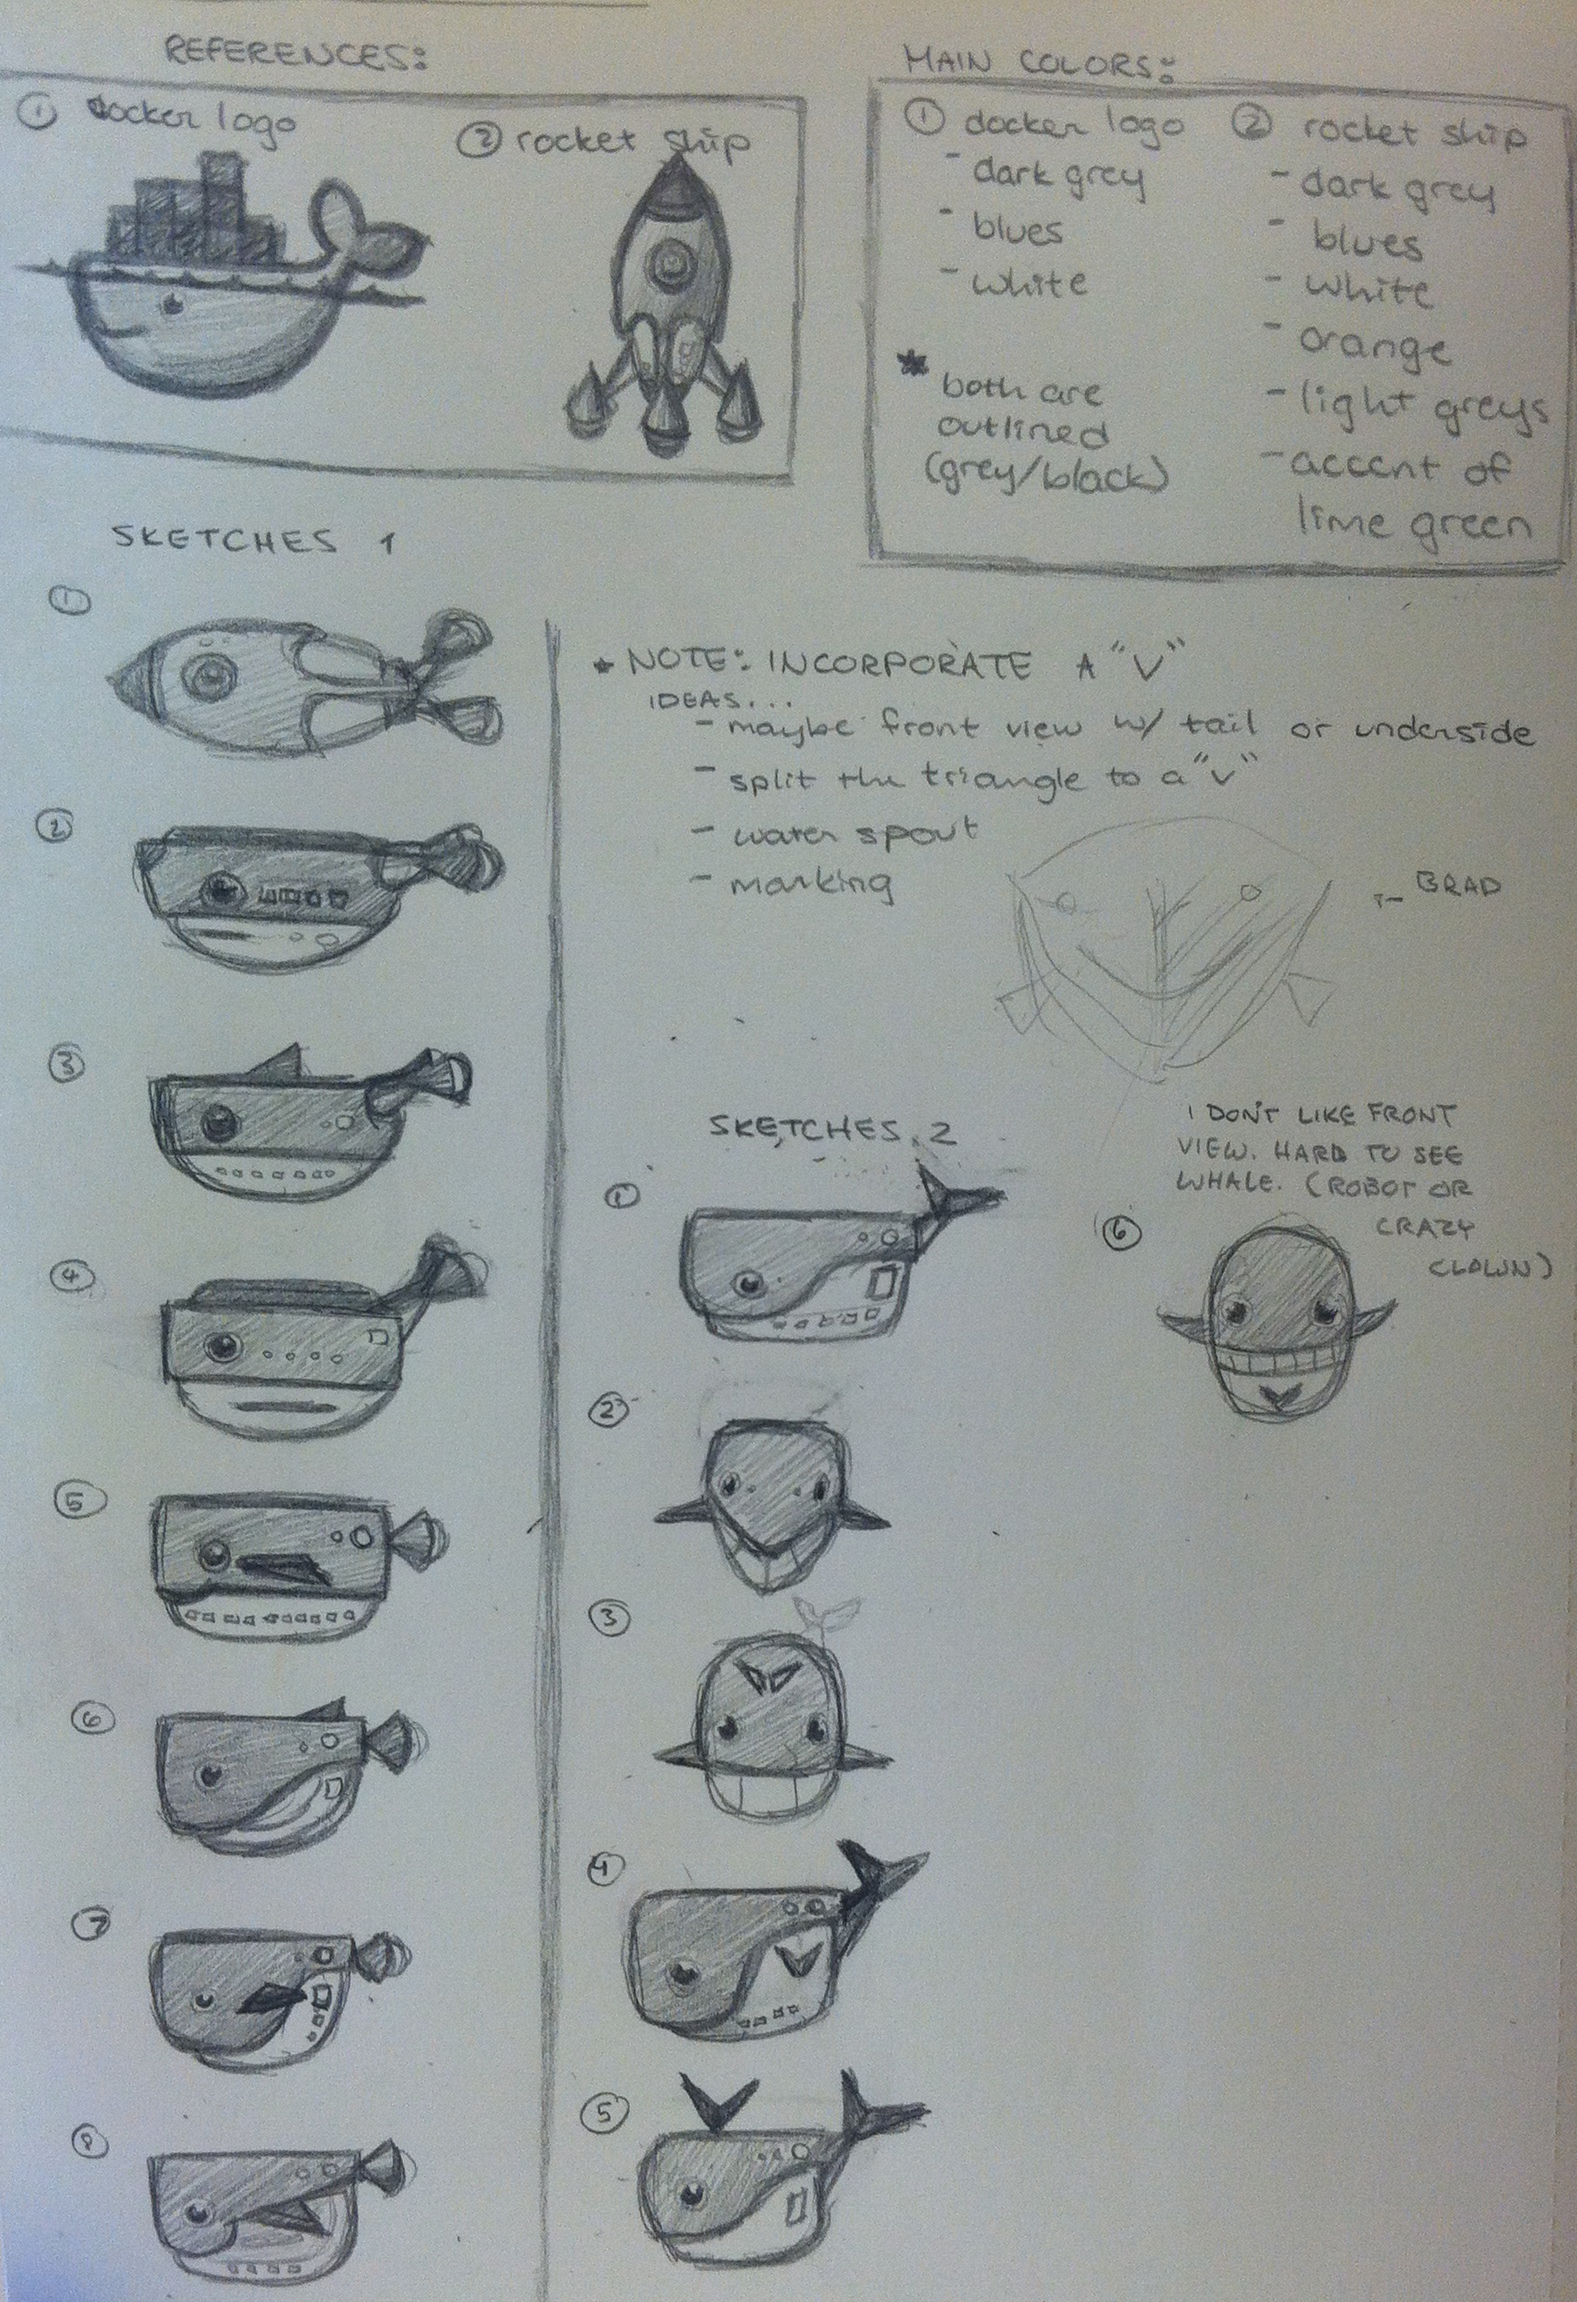 REFERENCES:
① docker logo
② rocket ship
MAIN COLORS:
① docker logo
- dark grey
- blues
- white
* both are
outlined
(grey/black)
② rocket ship
- dark grey
- blues
- white
- orange
- light greys
- accent of
lime green
SKETCHES 1
①
②
③
④
⑤
⑥
⑦
⑧
* NOTE: INCORPORATE A "V"
IDEAS...
- maybe front view w/ tail or underside
- split the triangle to a "v"
- water spout
- marking
BRAD
SKETCHES 2
①
②
③
④
⑤
I DON'T LIKE FRONT
VIEW. HARD TO SEE
WHALE. (ROBOT OR
CRAZY
CLOWN)
⑥